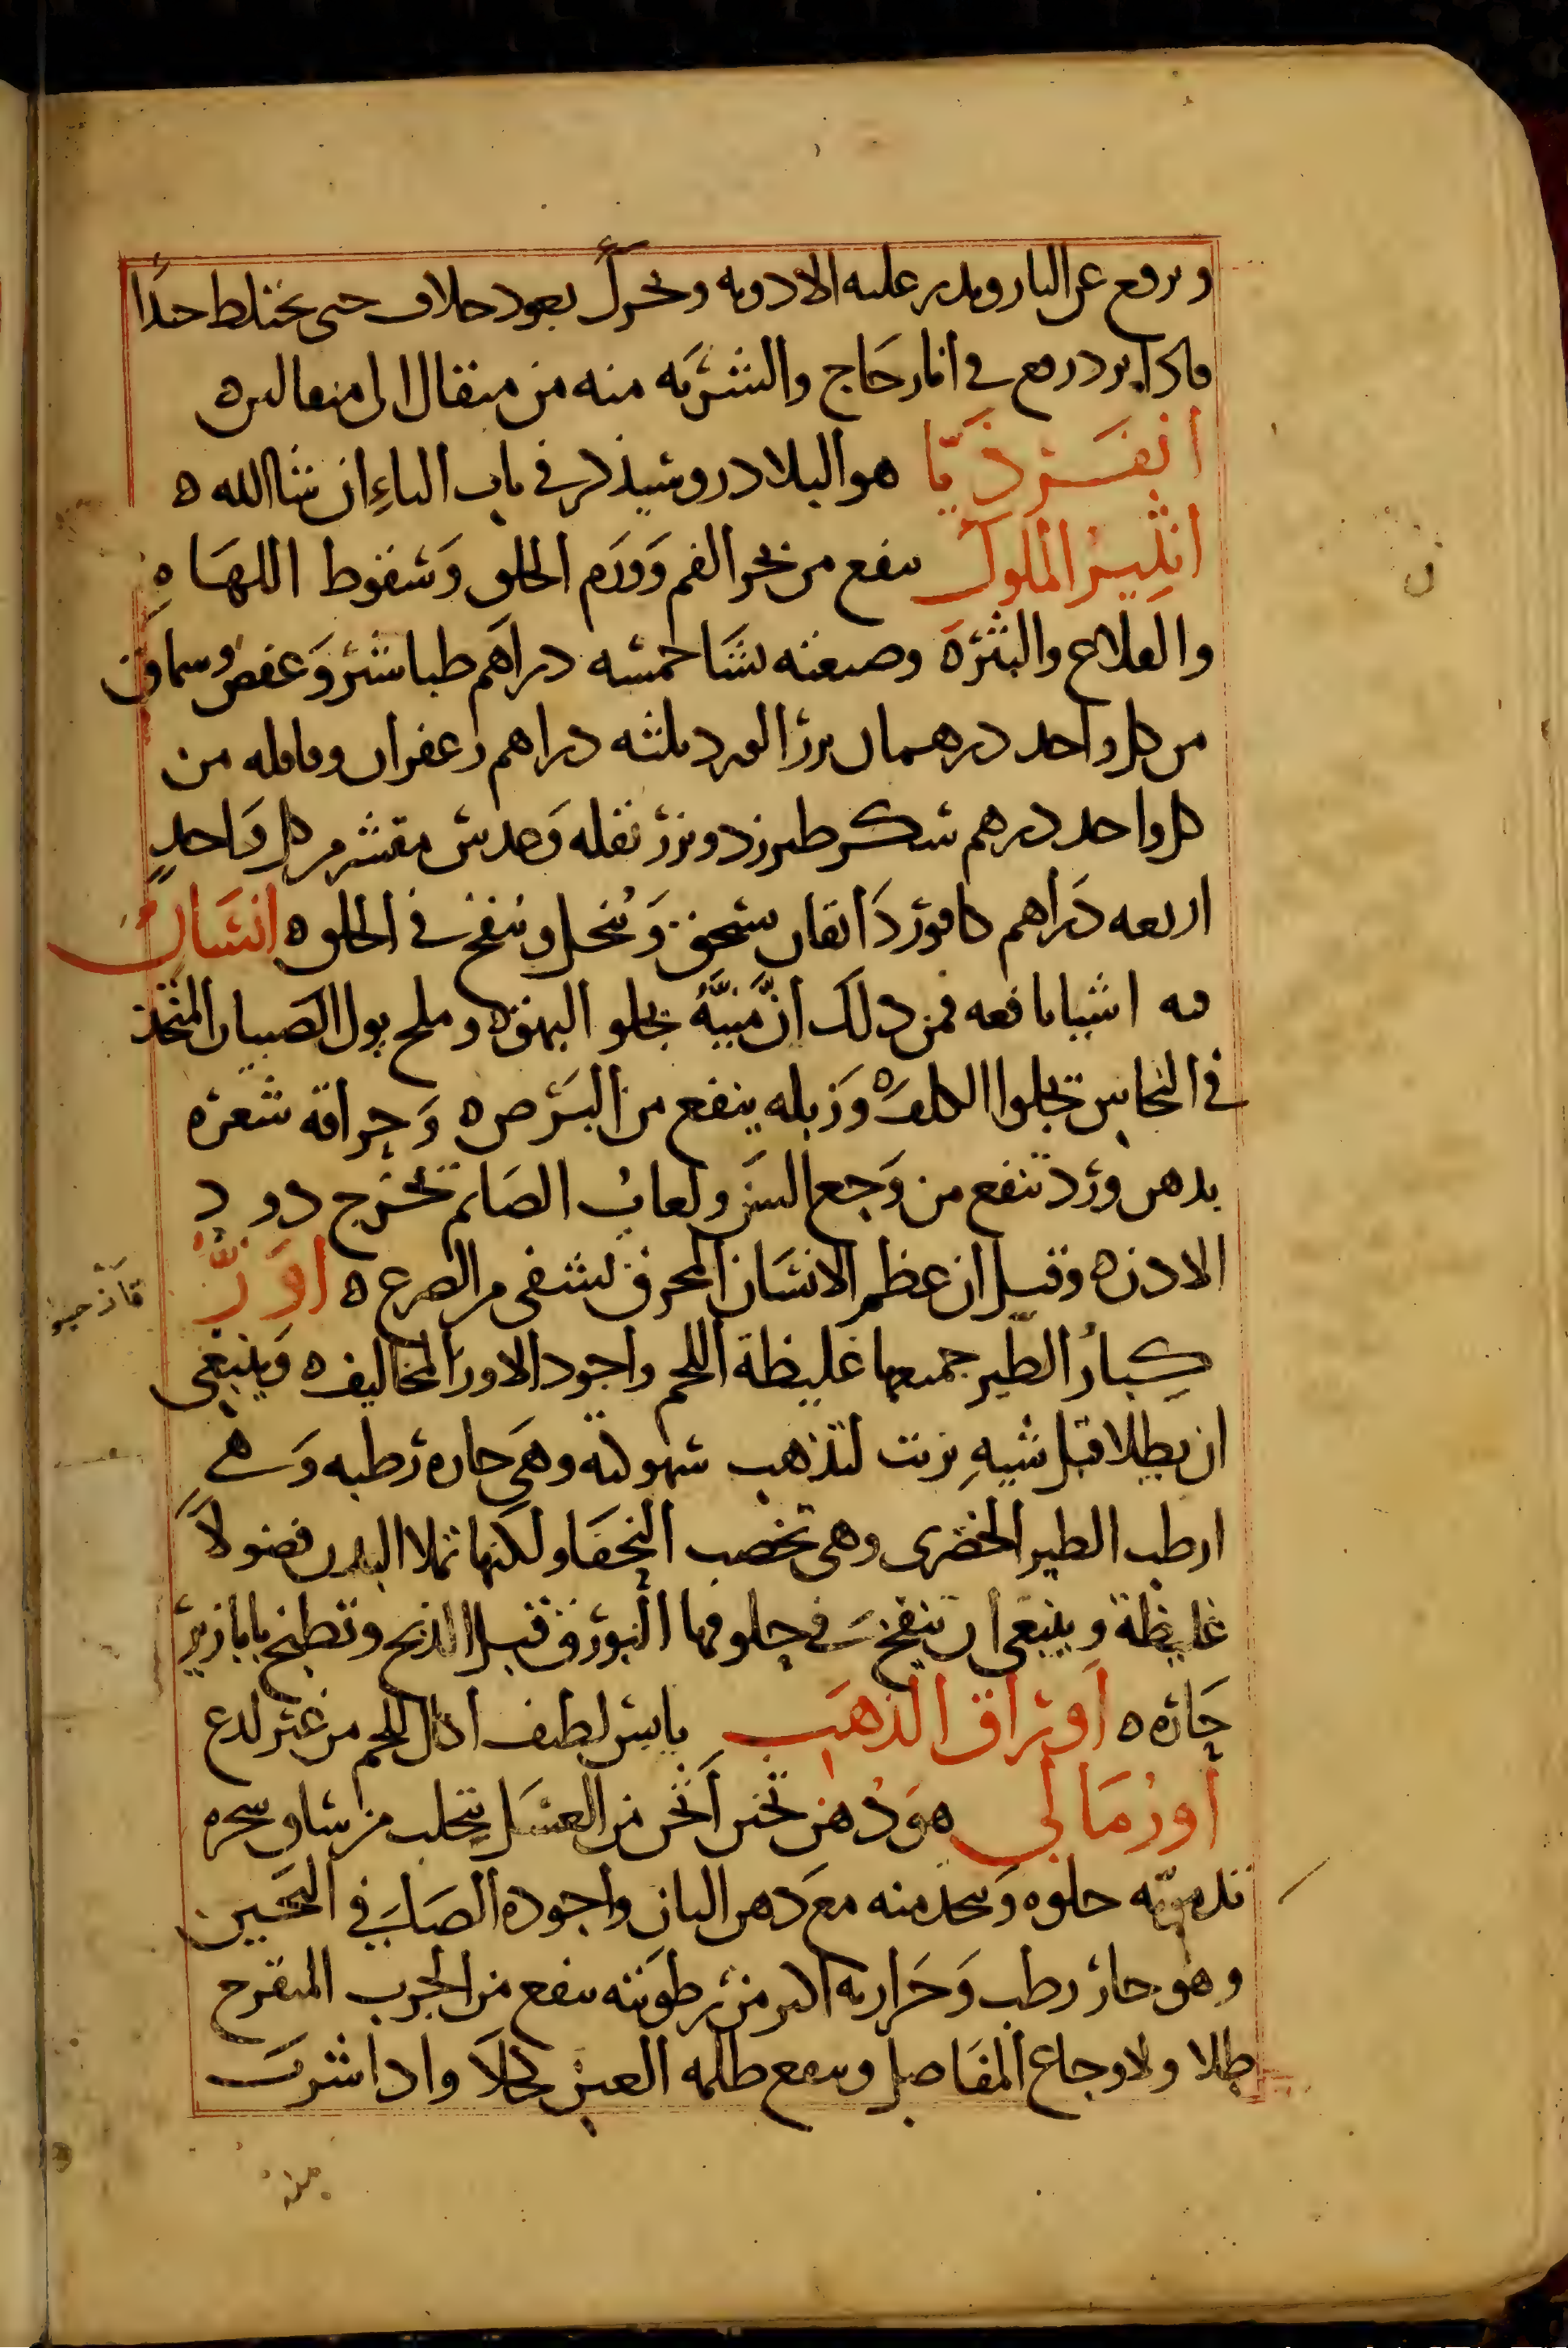 ويرفع عن النار ويذر عليه الادويه ويحرك بعود خلاف حتى يختلط جيدا
فاذا برد رفع في انا زجاج والشربه منه من مثقال الى مثقالين ه
انقرذيا هو البلادر وسيذكر في باب الباء ان شا الله ه
الملوك ينفع من بخر الفم وورم الحلق وسقوط اللهاه
والقلاع والبثره وصنعته نشا خمسه دراهم طباشير وعفص وسماق
من كل واحد درهمان بزر الورد ثلثه دراهم زعفران وقاقله من
كل واحد درهم سكر طبرزد وبزر بقله وعدس مقشر من كل واحد
اربعه دراهم كافور دانقان يسحق وينخل وينفخ في الحلق ه انسان
فيه اشيا نافعه فمن ذلك ان منيه يجلو البهق ه وملح بول الصبيان المتخذ
في النحاس يجلوا الكلف ه وزبله ينفع من البرص ه وحراقه شعره
بدهن ورد تنفع من وجع السن ولعاب الصايم تخرج دود
الاذن ه وقيل ان عظم الانسان المحرق يشفي من الصرع ه اوز
كبار الطير جميعها غليظة اللحم واجود الاوز المخاليف ه وينبغي
ان يطلا قبل شيه بزيت لتذهب سهوكته وهي حاره رطبه وهي
ارطب الطير الحضري وهي تخصب النحفا ولكنها تملا البدن فضولا
غليظة وينبغي ان تنفخ في حلوقها البورق قبل الذبح وتطبخ بابازير
حاره ه اوراق الذهب يابس لطيف اكال للحم من غير لذع
أورمالي هو دهن ثخين أثخن من العسل يتحلب من ساق شجره
تدمريه حلوه ويتخذ منه مع دهن البان واجوده الصافي الثخين
وهو حار رطب وحرارته اكثر من رطوبته ينفع من الجرب المتقرح
طلا ولاوجاع المفاصل وينفع ظلمه العين كحلا واذا شرب
ن